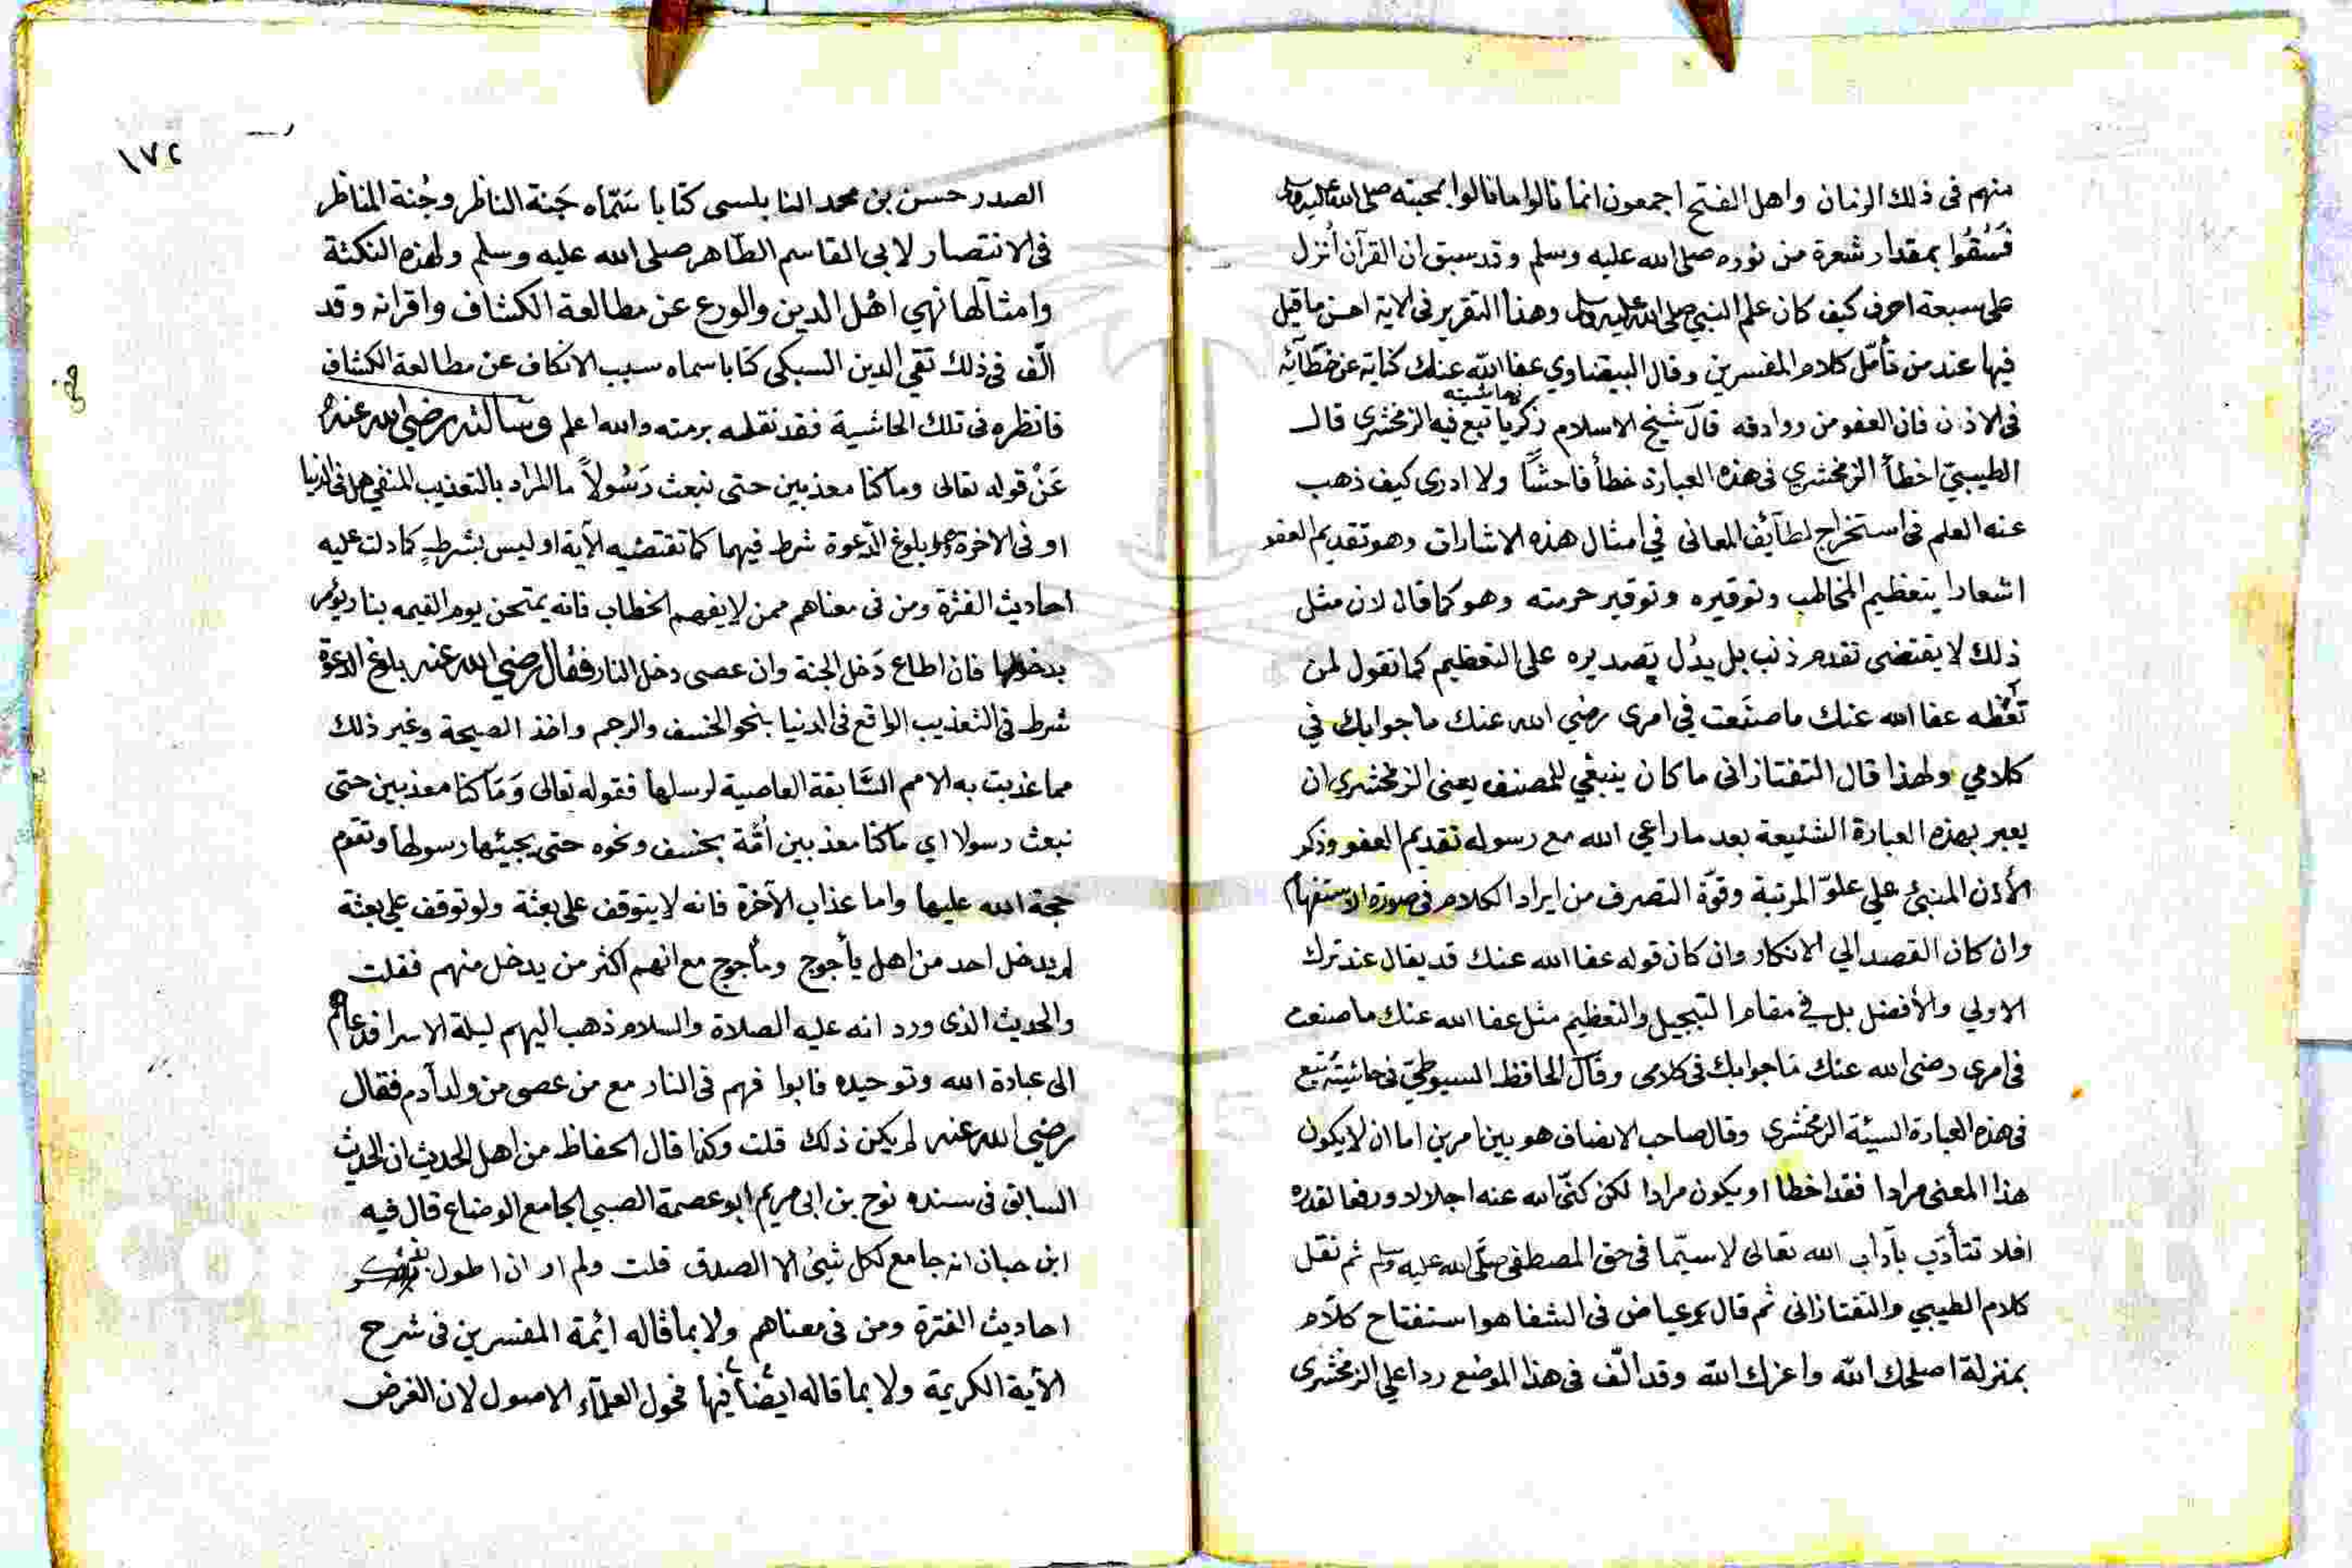 منهم فى ذلك الزمان واهل الفتح اجمعون انما نالوا ما نالوا بمحبته صلى الله عليه وسلم
فسُقُوا بمقدار شعرة من نوره صلى الله عليه وسلم وقد سبق ان القرآن اُنزل
على سبعة احرف كيف كان علم النبي صلى الله عليه وسلم وهذا التقرير فى الاية احسن ما قيل
فيها عند من تأمّل كلام المفسرين وقال البيضاوي عفا الله عنك كناية عن خطآئه
فى الاذن فان العفو من روادفه قال شيخ الاسلام زكريا فى حاشيته تبع فيه الزمخشري قال
الطيبيّ اخطأ الزمخشري فى هذه العبارة خطأ فاحشًا ولا ادرى كيف ذهب
عنه العلم فى استخراج لطآئف المعانى في امثال هذه الاشارات وهو تقديم العفو
اشعارا بتعظيم المخاطب وتوقيره وتوقير حرمته وهو كما قال لان مثل
ذلك لا يقتضى تقدم ذنب بل يدُل تصديره على التعظيم كما تقول لمن
تُعَظّمه عفا الله عنك ما صنَعت في امرى رضي الله عنك ما جوابك في
كلامي ولهذا قال التفتازانى ما كان ينبغي للمصنف يعنى الزمخشري ان
يعبر بهذه العبارة الشنيعة بعد ما راعى الله مع رسوله تقديم العفو وذكر
الأذن المنبئ علي علوّ المرتبة وقوّة التصرف من ايراد الكلام فى صورة الاستفهام
وان كان القصد الي الانكار وان كان قوله عفا الله عنك قد يقال عند ترك
الاولي والأفضل بل في مقام التبجيل والتعظيم مثل عفا الله عنك ما صنعت
فى امرى رضى الله عنك ما جوابك فى كلامى وقال الحافظ السيوطيّ فى حاشيته تبع
فى هذه العبارة السيئة الزمخشرى وقال صاحب الانصاف هو بين امرين اما ان لا يكون
هذا المعنى مرادا فقد اخطا او يكون مرادا لكن كنّى الله عنه اجلالا ورفعا لقدره
افلا تتأدّب بآداب الله تعالى لاسيّما فى حق المصطفى صلى الله عليه وسلم ثم نقل
كلام الطيبي والتفتازانى ثم قال عياض فى الشفا هو استفتاح كلام
بمنزلة اصلحك الله واعزك الله وقد الّف فى هذا الموضع ردا علي الزمخشرى
١٧٢
الصدر حسن بن محمد النابلسى كتابا سمّاه جَنة الناظر وجُنة المناظر
فى الانتصار لابى القاسم الطّاهر صلى الله عليه وسلم ولهذه النكتة
وامثآلها نهي اهل الدين والورع عن مطالعة الكشاف واقرانه وقد
الّف فى ذلك تقي الدين السبكى كتابا سماه سبب الانكاف عن مطالعة الكشاف
فانظره فى تلك الحاشية فقد نقله برمته والله اعلم وسالته رضي الله عنه
عَنْ قوله تعالى وما كنا معذبين حتى نبعث رَسُولاً ما المراد بالتعذيب المنفي هل فى الدنيا
او فى الاخرة وهل بلوغ الدّعوة شرط فيهما كما تقتضيه الآية او ليس بشرطٍ كما دلت عليه
احاديث الفترة ومن فى معناهم ممن لا يفهم الخطاب فانه يمتحن يوم القيمه بنار ويؤمر
بدخولها فان اطاع دَخل الجنة وان عصى دخل النار فقال رضي الله عنه بلوغ الدعوة
شرط فى التعذيب الواقع فى الدنيا بنحو الخسف والرجم واخذ الصيحة وغير ذلك
مما عذبت به الامم السَّابقة العاصية لرسلها فقوله تعالى وَمَا كنا معذبين حتى
نبعث رسولا اي ما كنا معذبين اُمّة بخسف ونحوه حتى يجيئها رسولها وتقوم
حجة الله عليها واما عذاب الآخرة فانه لا يتوقف على بعثة ولو توقف علي بعثة
لم يدخل احد من اهل يأجوج ومأجوج مع انهم اكثر من يدخل منهم فقلت
والحديث الذى ورد انه عليه الصلاة والسلام ذهب اليهم ليلة الاسرا فدعاهم
الى عبادة الله وتوحيده فابوا فهم فى النار مع من عصى من ولد آدم فقال
رضي الله عنه لم يكن ذلك قلت وكذا قال الحفاظ من اهل الحديث ان الحديث
السابق فى سنده نوح بن ابى مريم ابو عصمة الصبي الجامع الوضاع قال فيه
ابن حبان انه جامع لكل شيئ الا الصدق قلت ولم ار ان اطول
احاديث الفترة ومن فى معناهم ولا بما قاله ائمة المفسرين فى شرح
الآية الكريمة ولا بما قاله ايضًا فيها فحول العلمآء الاصول لان الغرض